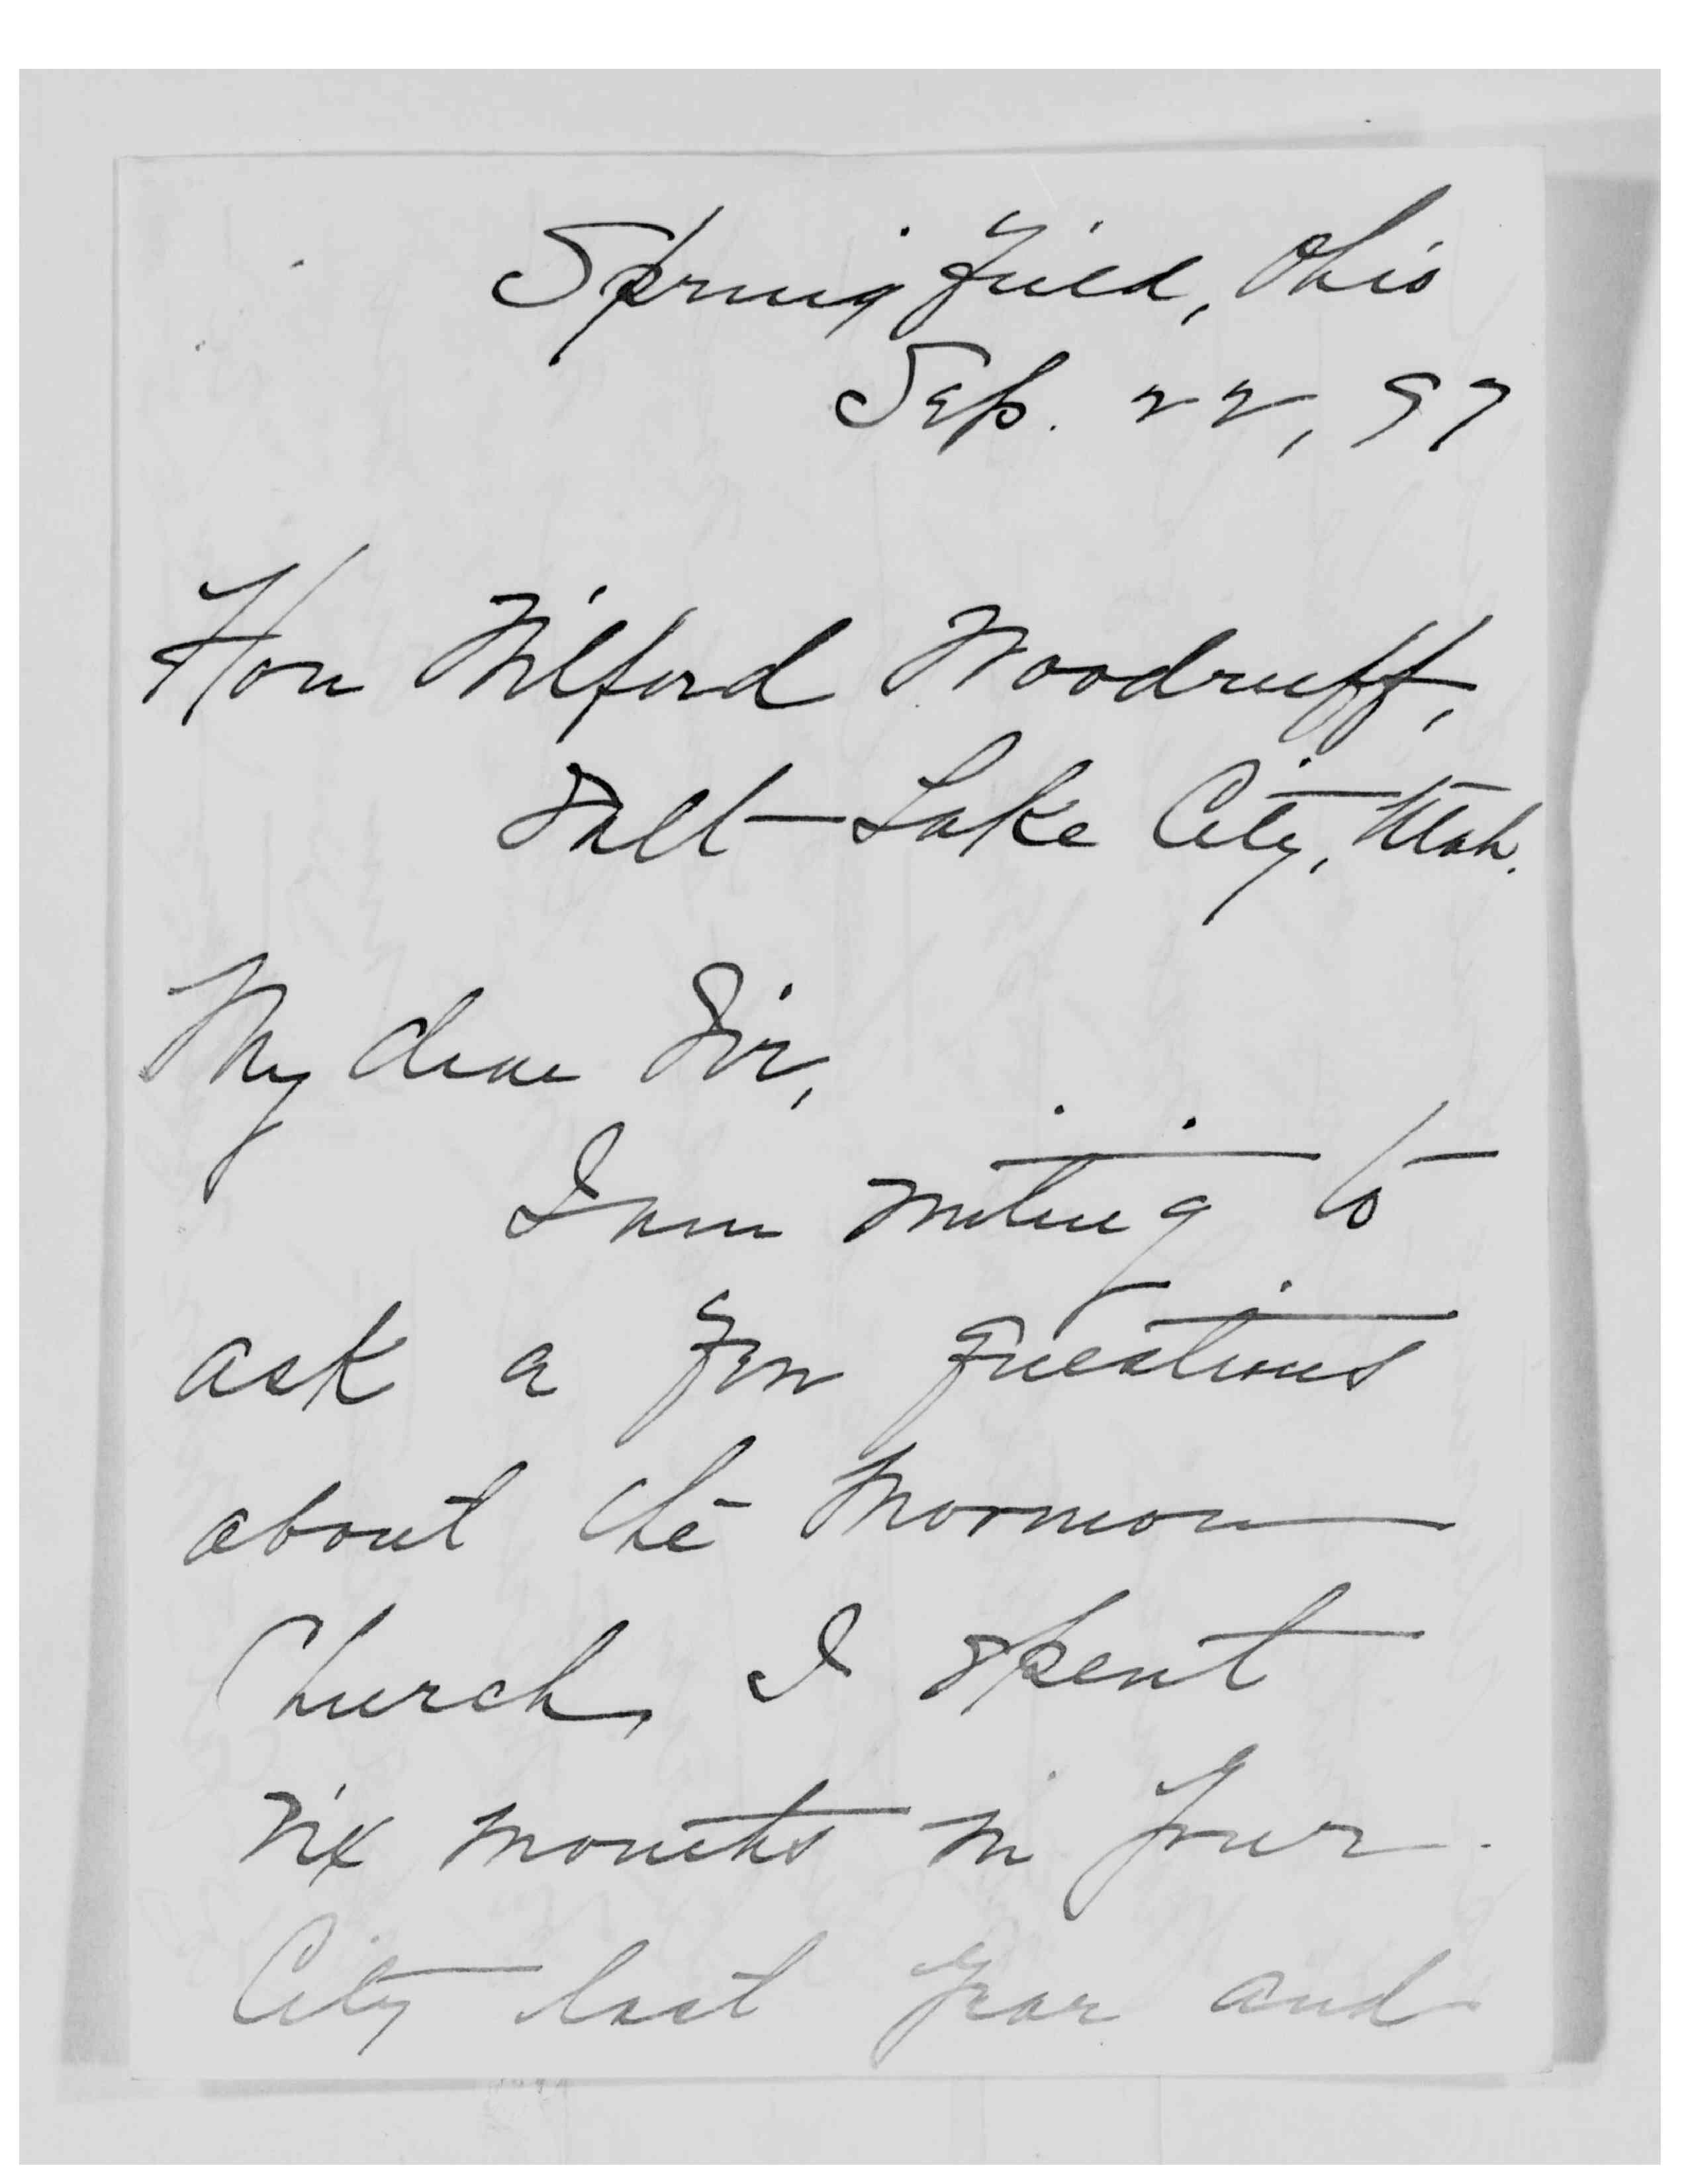 Springfield, Ohio
Sep. 22, 97
Hon Wilford Woodruff,
Salt Lake City, Utah.
My dear Sir,
I am writing to
ask a few questions
about the Mormon
Church, I spent
six months in your
City last year and